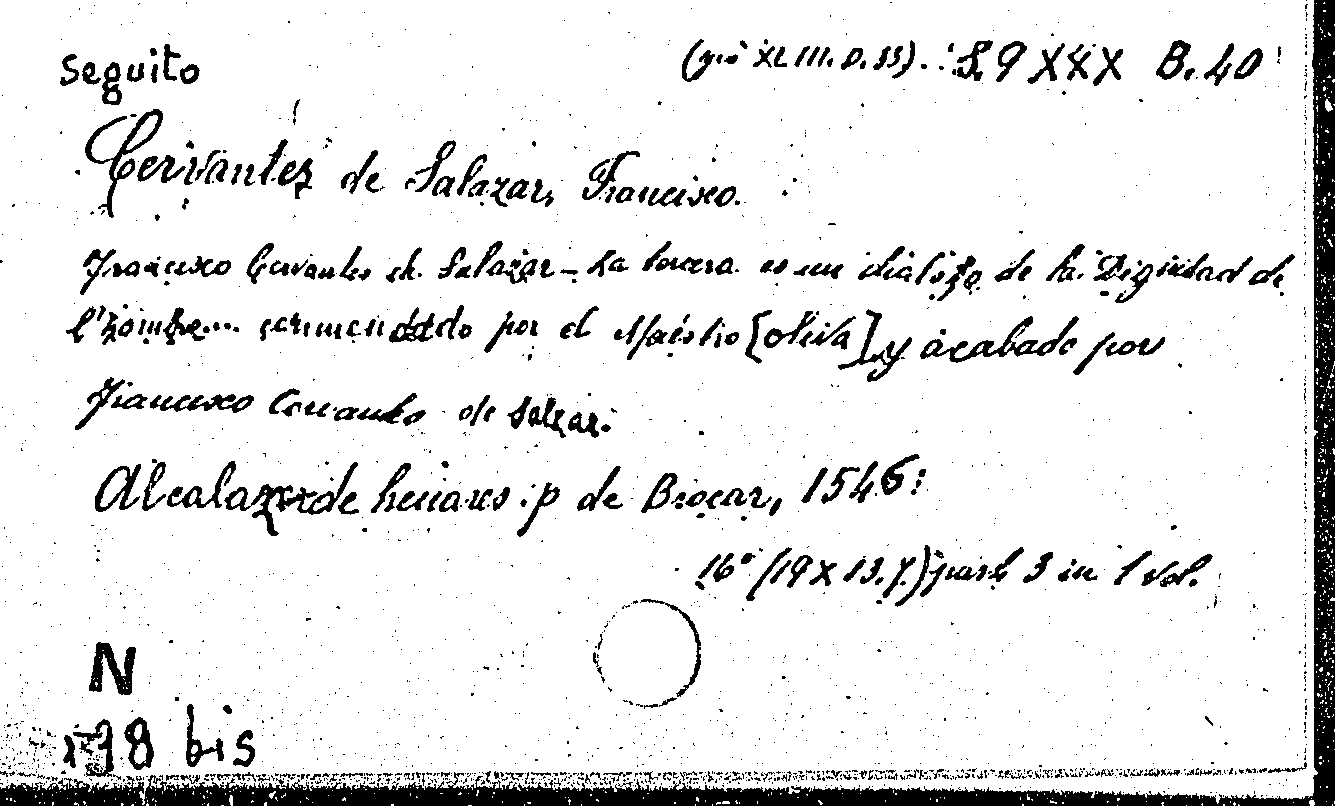 seguito (già XLIII. D. 55). S.Q XXX B. 40
Cervantes de Salazar, Francisco.
Francisco Cervantes de Salazar - La tercera es un dialogo de la Dignidad de
l'hombre... por el Maestro [oliva] y acabado por
Francisco Cervantes de Salazar.
Alcala de henares. p de Brocar, 1546:
16° (19 x 13.7) part 3 in 1 vol.
N
198 bis